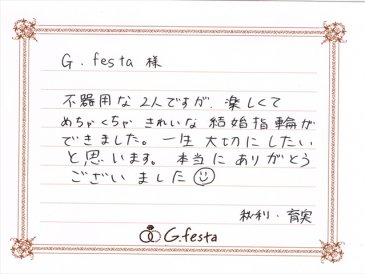 G.festa 様
不器用な2人ですが、楽しくて
めちゃくちゃ きれいな 結婚指輪が
できました。一生 大切に したい
と思います。本当に ありがとう
ございました
・育実
G.festa